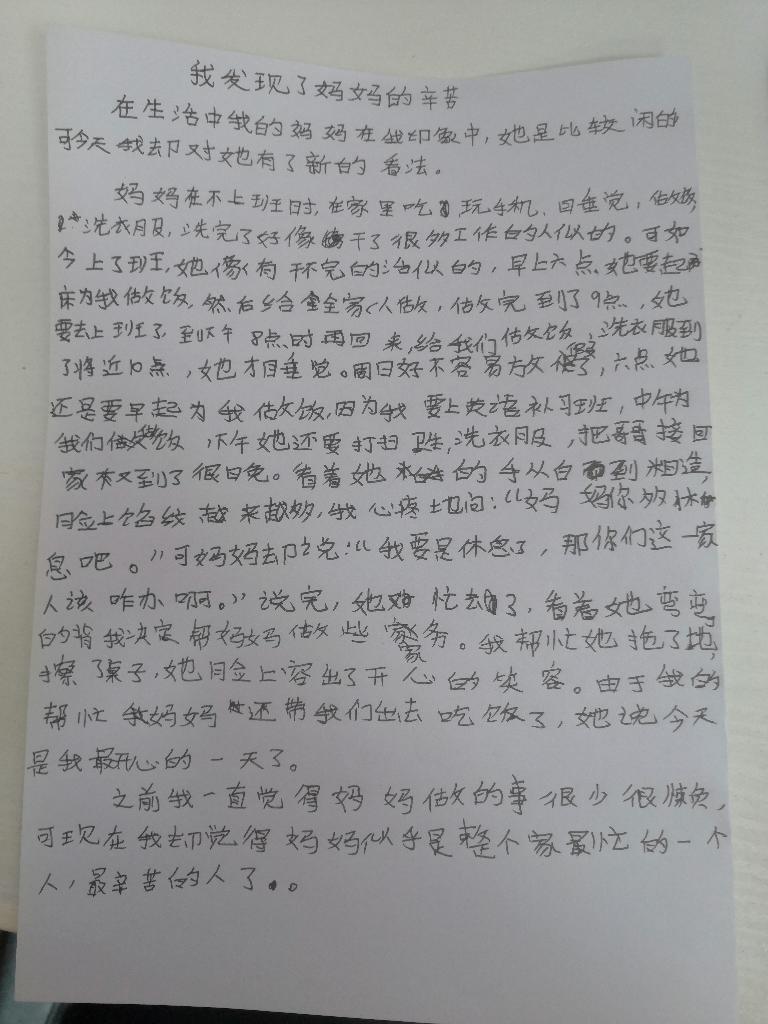 我发现了妈妈的辛苦
在生活中我的妈妈在我印象中，她是比较闲的
可今天我却对她有了新的看法。
妈妈在不上班时，在家里吃，玩手机、睡觉，做饭，
洗衣服，洗完了好像干了很多工作的人似的。可如
今上了班，她像有干不完的活似的，早上六点她要起
床为我做饭，然后给全家人做，做完到了9点，她
要去上班了，到下午8点时再回来，给我们做饭，洗衣服到
了将近10点，她才睡觉。周日好不容易放假了，六点她
还是要早起为我做饭，因为我要上英语补习班，中午为
我们做饭，下午她还要打扫卫生，洗衣服，把哥哥接回
家又到了很晚。看着她的手从白到粗造，
脸上的皱纹越来越多，我心疼地问：“妈妈你多休
息吧。”可妈妈却说：“我要是休息了，那你们这一家
人该咋办啊。”说完，她忙去了，看着她弯弯
的背我决定帮妈妈做些家务。我帮忙她拖了地，
擦了桌子，她脸上溶出了开心的笑容。由于我的
帮忙我妈妈还带我们出去吃饭了，她说今天
是我最开心的一天了。
之前我一直觉得妈妈做的事很少很
可现在我却觉得妈妈似乎是整个家最忙的一个
人，最辛苦的人了。